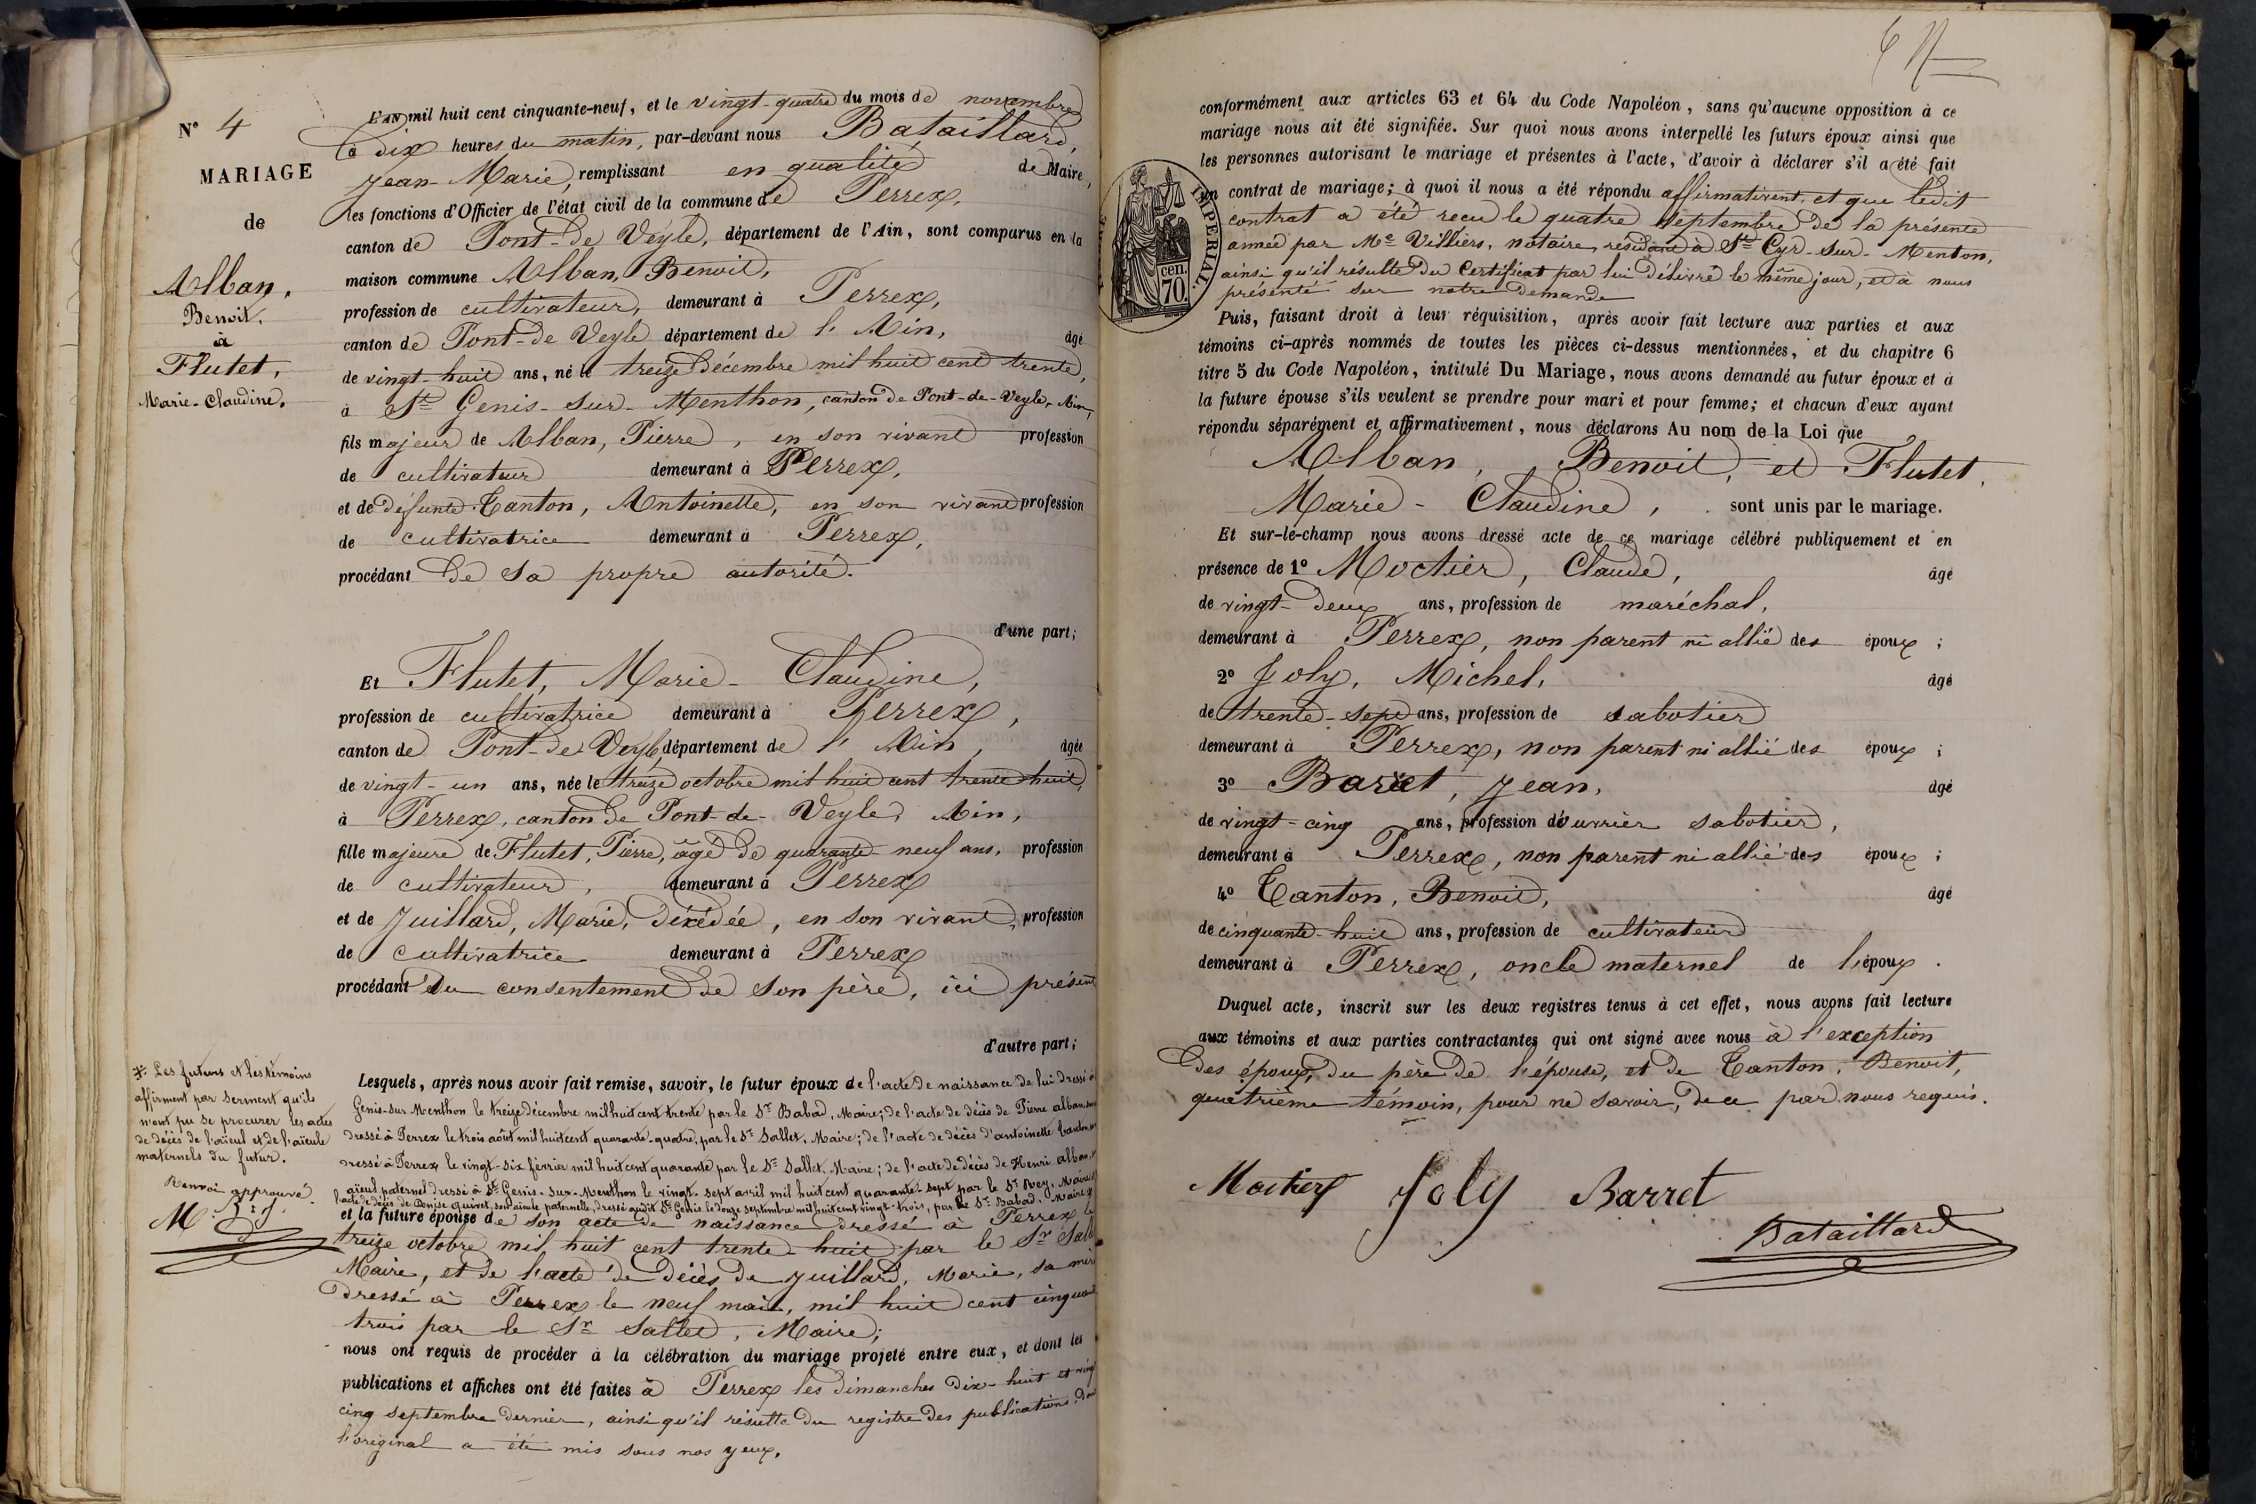 N° 4
MARIAGE
de
Alban,
Benoit.
à
Flutet,
Marie-Claudine.
L'AN mil huit cent cinquante-neuf, et le vingt-quatre du mois de novembre
à dix heures du matin, par-devant nous Bataillard,
Jean-Marie, remplissant en qualité de Maire,
les fonctions d'Officier de l'état civil de la commune de Perrex,
canton de Pont-de Veyle, département de l'Ain, sont comparus en la
maison commune Alban, Benoit,
profession de cultivateur, demeurant à Perrex,
canton de Pont-de Veyle département de l'Ain, âgé
de vingt-huit ans, né le treize décembre mil huit cent trente,
à St Genis-sur-Menthon, canton de Pont-de-Veyle, Ain,
fils majeur de Alban, Pierre, en son vivant profession
de cultivateur demeurant à Perrex,
et de défunte Canton, Antoinette, en son vivant profession
de cultivatrice demeurant à Perrex,
procédant de sa propre autorité.
d'une part;
Et Flutet, Marie-Claudine,
profession de cultivatrice demeurant à Perrex,
canton de Pont-de Veyle, département de l'Ain, âgée
de vingt-un ans, née le treize octobre mil huit cent trente huit,
à Perrex, canton de Pont-de-Veyle, Ain,
fille majeure de Flutet, Pierre, âgé de quarante-neuf ans, profession
de cultivateur, demeurant à Perrex
et de Juillard, Marie, décédée, en son vivant, profession
de cultivatrice demeurant à Perrex
procédant du consentement de son père, ici présent
d'autre part;
Lesquels, après nous avoir fait remise, savoir, le futur époux de l'acte de naissance de lui dressé à
Genis-sur-Menthon le treize décembre mil huit cent trente par le Sr Babad, Maire; de l'acte de décès de Pierre alban, son
dressé à Perrex le trois août mil huit cent quarante-quatre, par le Sr Sallet, Maire; de l'acte de décès d'antoinette Canton,
dressé à Perrex le vingt-six février mil huit cent quarante par le Sr Sallet, Maire; de l'acte de décès de Henri alban,
aïeul paternel dressé à St Genis-sur-Menthon le vingt-sept avril mil huit cent quarante-sept par le Sr Rey, Maire
l'acte de décès de Denise Quivet, son aïeule paternelle, dressé audit St Genis le douze septembre mil huit cent vingt-trois, par le Sr Babad, Maire
et la future épouse de son acte de naissance dressé à Perrex le
treize octobre mil huit cent trente-huit par le Sr Sallet
Maire, et de l'acte de décès de Juillard, Marie, sa mère
dressé à Perrex le neuf mai, mil huit cent cinquante
trois par le Sr Sallet, Maire;
nous ont requis de procéder à la célébration du mariage projeté entre eux, et dont les
publications et affiches ont été faites à Perrex les dimanches dix-huit et vingt
cinq septembre dernier, ainsi qu'il résulte du registre des publications dont
l'original a été mis sous nos yeux.
* Les futurs et les témoins
affirment par serment qu'ils
n'ont pu se procurer les actes
de décès de l'aïeul et de l'aïeule
maternels du futur.
Renvoi approuvé
conformément aux articles 63 et 64 du Code Napoléon, sans qu'aucune opposition à ce
mariage nous ait été signifiée. Sur quoi nous avons interpellé les futurs époux ainsi que
les personnes autorisant le mariage et présentes à l'acte, d'avoir à déclarer s'il a été fait
un contrat de mariage; à quoi il nous a été répondu affirmativent, et que ledit
contrat a été recu le quatre septembre de la présente
année par Me Villiers, notaire, résidant à St Cyr-sur-Menton,
ainsi qu'il résulte du Certificat par lui délivré le même jour, et à nous
présenté sur notre demande
IMPÉRIAL.
cen.
70.
Puis, faisant droit à leur réquisition, après avoir fait lecture aux parties et aux
témoins ci-après nommés de toutes les pièces ci-dessus mentionnées, et du chapitre 6
titre 5 du Code Napoléon, intitulé Du Mariage, nous avons demandé au futur époux et à
la future épouse s'ils veulent se prendre pour mari et pour femme; et chacun d'eux ayant
répondu séparément et affirmativement, nous déclarons Au nom de la Loi que
Alban, Benoit, et Flutet,
Marie-Claudine, sont unis par le mariage.
Et sur-le-champ nous avons dressé acte de ce mariage célébré publiquement et en
présence de 1° Moctier, Claude, âgé
de vingt-deux ans, profession de maréchal,
demeurant à Perrex, non parent ni allié des époux;
2° Joly, Michel, âgé
de trente-sept ans, profession de sabotier
demeurant à Perrex, non parent ni allié des époux;
3° Barret, Jean, âgé
de vingt-cinq ans, profession d'ouvrier sabotier,
demeurant à Perrex, non parent ni allié des époux;
4° Canton, Benoit, âgé
de cinquante-huit ans, profession de cultivateur
demeurant à Perrex, oncle maternel de l'époux.
Duquel acte, inscrit sur les deux registres tenus à cet effet, nous avons fait lecture
aux témoins et aux parties contractantes qui ont signé avec nous à l'exception
des époux, du père de l'épouse, et de Canton, Benoit,
quatrième témoin, pour ne savoir, de ce par nous requis.
Moctier Joly Barret
Bataillard